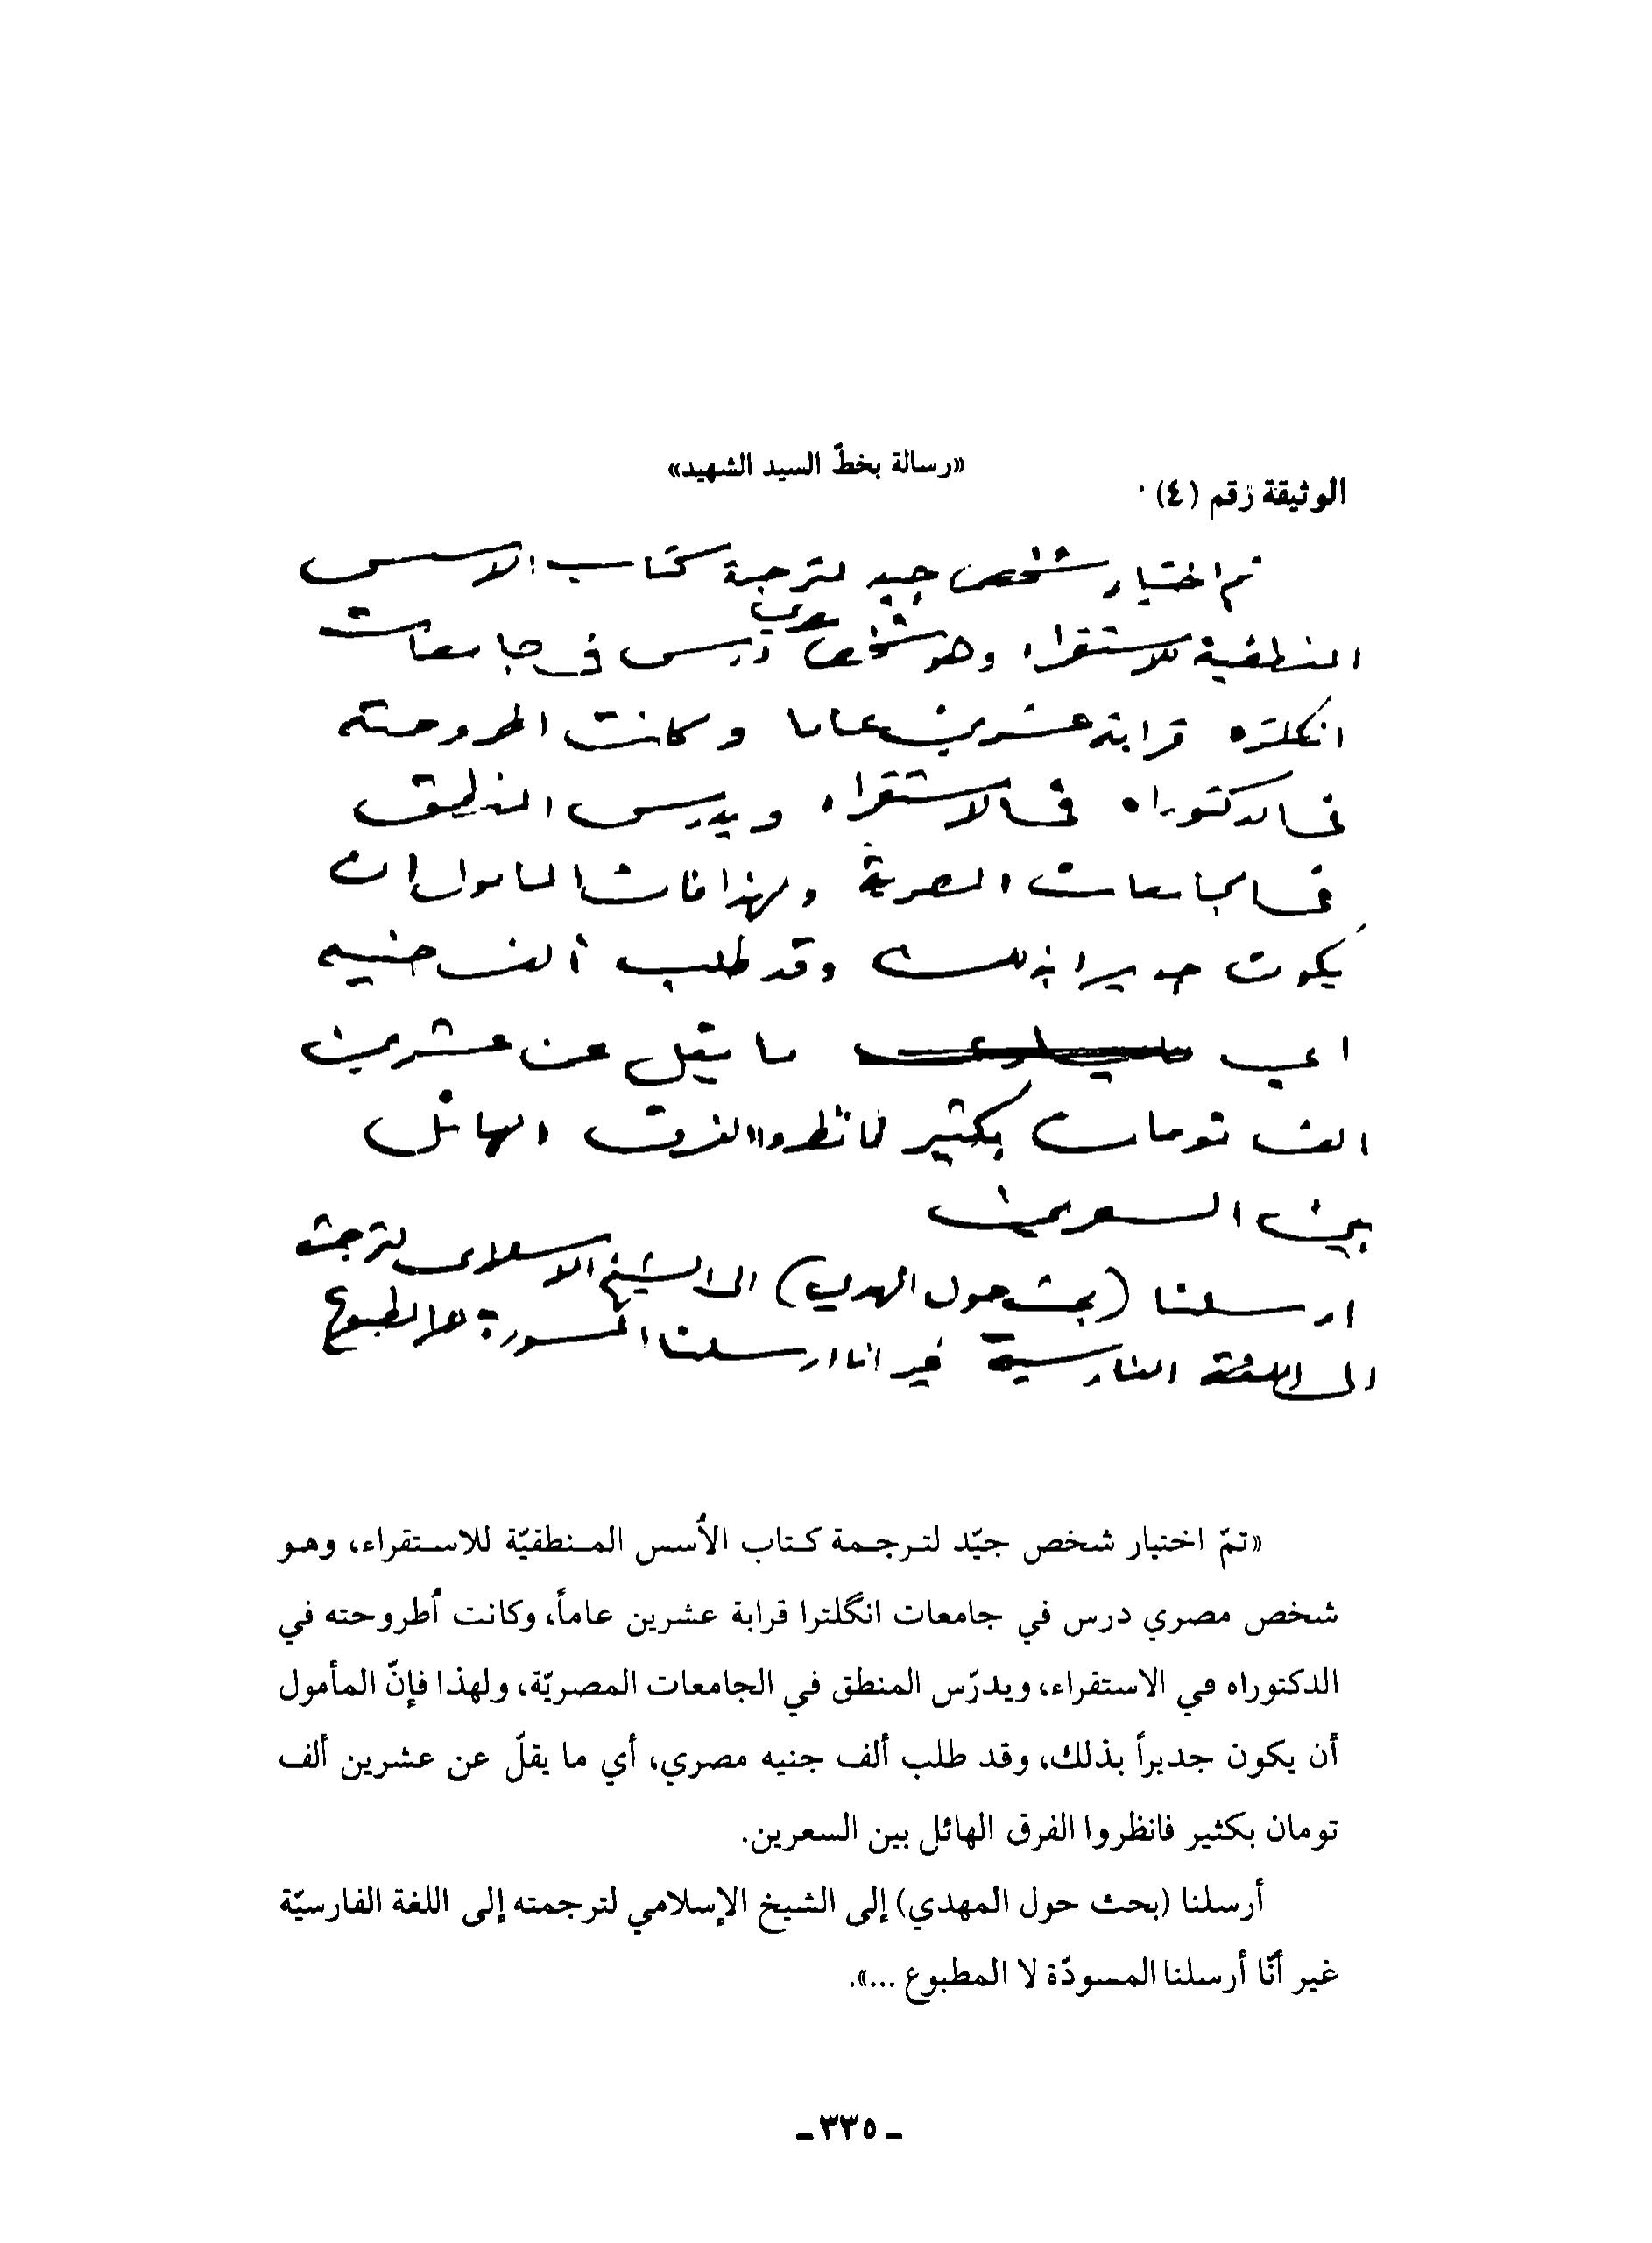 «رسالة بخطّ السيد الشهيد»
الوثيقة رقم (٤) ·
تم اختيار شخص جيد لترجمة كتاب الاسس
المنطقية للاستقراء وهو شخص مصري درس في جامعات
انكلتره قرابة عشرين عاما وكانت اطروحته
في الدكتوراه في الاستقراء ويدرس المنطق
في الجامعات المصرية ولهذا فان المامول ان
يكون جديرا بذلك وقد طلب الف جنيه
اي ما يقل عن عشرين
الف تومان بكثير فانظروا الفرق الهائل
بين السعرين
ارسلنا (بحث حول المهدي) الى الشيخ الاسلامي لترجمته
الى اللغة الفارسية غير انا ارسلنا المسودة لا المطبوع
«تمّ اختيار شخص جيّد لترجمة كتاب الأسس المنطقيّة للاستقراء، وهو
شخص مصري درس في جامعات انگلترا قرابة عشرين عاماً، وكانت أطروحته في
الدكتوراه في الاستقراء، ويدرّس المنطق في الجامعات المصريّة، ولهذا فإنّ المأمول
أن يكون جديراً بذلك، وقد طلب ألف جنيه مصري، أي ما يقلّ عن عشرين ألف
تومان بكثير فانظروا الفرق الهائل بين السعرين.
أرسلنا (بحث حول المهدي) إلى الشيخ الإسلامي لترجمته إلى اللغة الفارسيّة
غير أنّا أرسلنا المسودّة لا المطبوع ...».
ـ ٣٣٥ ـ